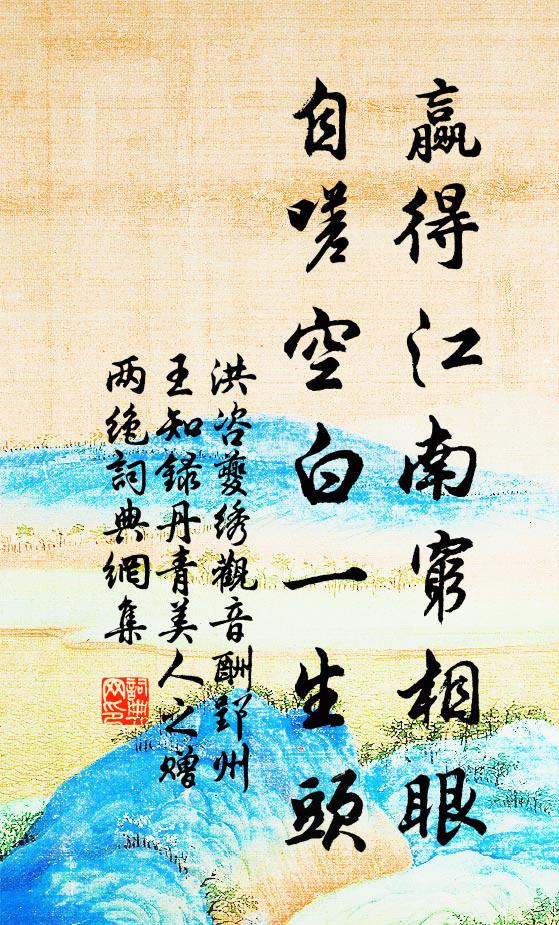 贏得江南窮相眼
自嗟空白一生頭
洪咨夔绣觀音酬郢州
王知録丹青美人之赠
两絶詞典網集
詞典网印